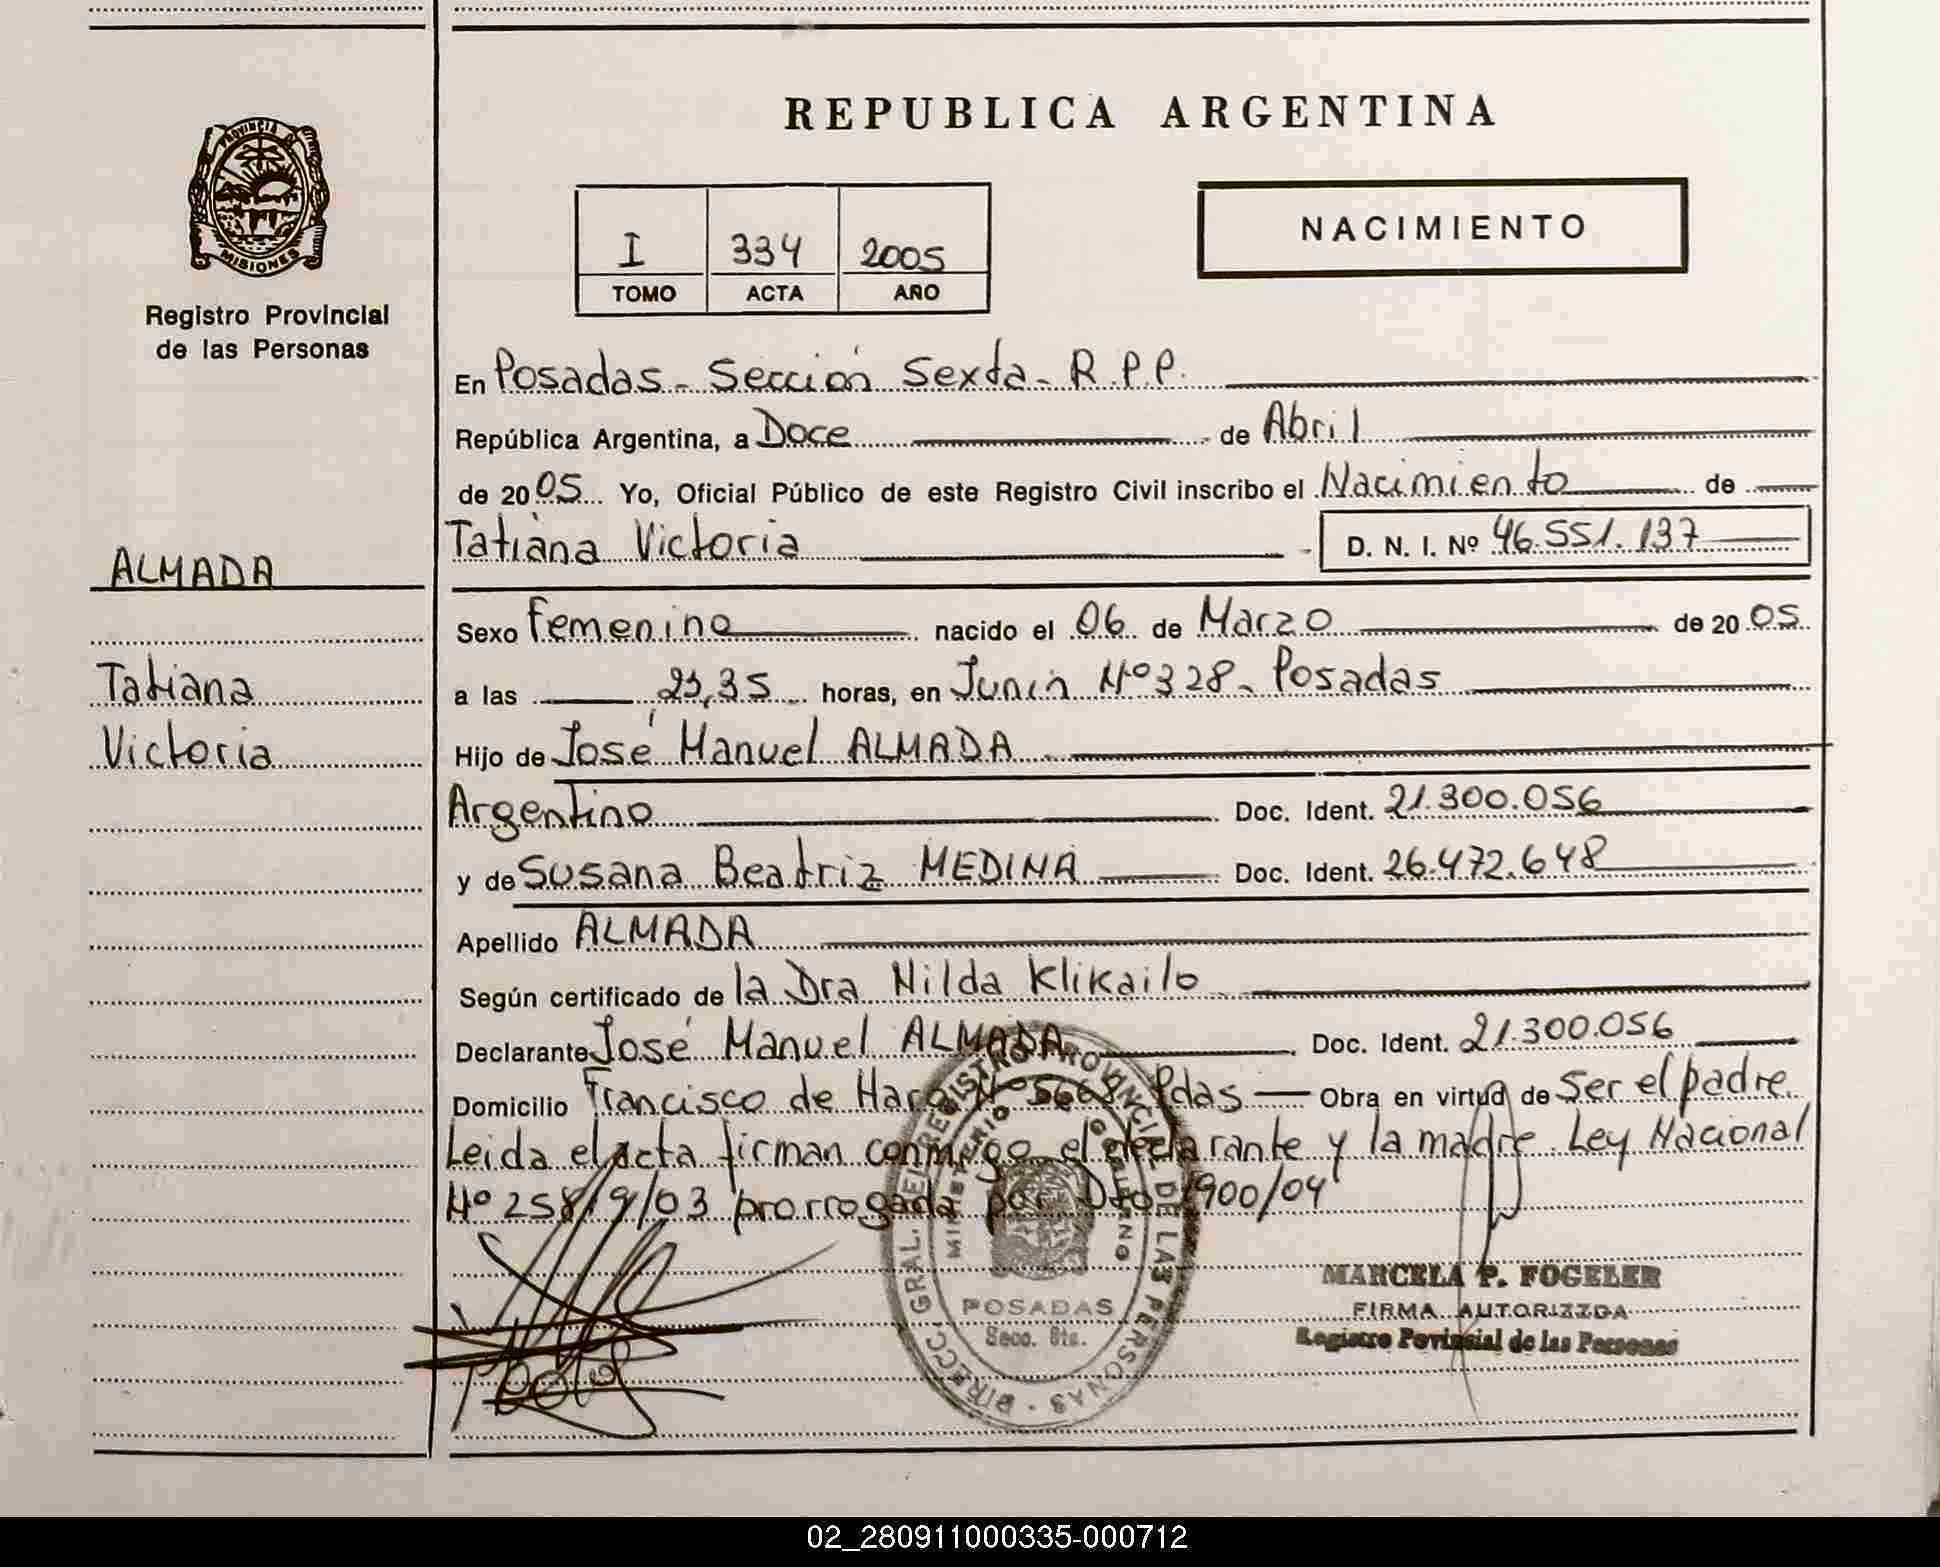 REPUBLICA ARGENTINA
PROVINCIA DE
MISIONES
Registro Provincial
de las Personas
I 334 2005
TOMO ACTA AÑO
NACIMIENTO
En Posadas - Sección Sexta - R.P.P.
República Argentina, a Doce de Abril
de 2005 Yo, Oficial Público de este Registro Civil inscribo el Nacimiento de
Tatiana Victoria D. N. I. Nº 46.551.137
ALMADA
Tatiana
Victoria
Sexo Femenino nacido el 06 de Marzo de 2005
a las horas, en Junin Nº 328 - Posadas
Hijo de José Manuel ALMADA
Argentino Doc. Ident. 21.300.056
y de Susana Beatriz MEDINA Doc. Ident. 26.472.648
Apellido ALMADA
Según certificado de la Dra Nilda Klikailo
Declarante José Manuel ALMADA Doc. Ident. 21.300.056
Domicilio Francisco de Haro Nº 5668 Pdas Obra en virtud de Ser el padre
Leida el acta firman conmigo el declarante y la madre. Ley Nacional
Nº 25819/03 prorrogada por Dto 1900/04
DIRECC. GRAL. EL REGISTRO PROVINCIAL DE LAS PERSONAS
MINISTERIO GOBIERNO
POSADAS
Secc. 6ta.
MARCELA P. FOGELER
FIRMA AUTORIZZDA
Registro Povinsial de las Personas
02_280911000335-000712